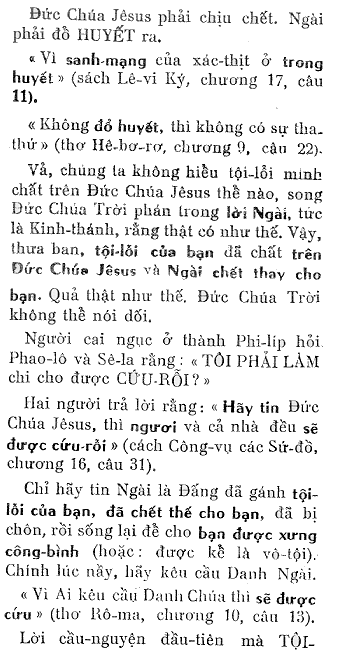 Đức Chúa Jêsus phải chịu chết. Ngài
phải đổ HUYẾT ra.
« Vì sanh-mạng của xác-thịt ở trong
huyết » (sách Lê-vi Ký, chương 17, câu
11).
« Không đổ huyết, thì không có sự tha-
thứ » (thơ Hê-bơ-rơ, chương 9, câu 22).
Vả, chúng ta không hiểu tội-lỗi mình
chất trên Đức Chúa Jêsus thể nào, song
Đức Chúa Trời phán trong lời Ngài, tức
là Kinh-thánh, rằng thật có như thế. Vậy,
thưa bạn, tội-lỗi của bạn đã chất trên
Đức Chúa Jêsus và Ngài chết thay cho
bạn. Quả thật như thế. Đức Chúa Trời
không thể nói dối.
Người cai ngục ở thành Phi-líp hỏi
Phao-lô và Sê-la rằng : « TÔI PHẢI LÀM
chi cho được CỨU-RỖI ? »
Hai người trả lời rằng : « Hãy tin Đức
Chúa Jêsus, thì ngươi và cả nhà đều sẽ
được cứu-rỗi » (cách Công-vụ các Sứ-đồ,
chương 16, câu 31).
Chỉ hãy tin Ngài là Đấng đã gánh tội-
lỗi của bạn, đã chết thế cho bạn, đã bị
chôn, rồi sống lại để cho bạn được xưng
công-bình (hoặc : được kể là vô-tội).
Chính lúc nầy, hãy kêu cầu Danh Ngài.
« Vì Ai kêu cầu Danh Chúa thì sẽ được
cứu » (thơ Rô-ma, chương 10, câu 13).
Lời cầu-nguyện đầu-tiên mà TỘI-